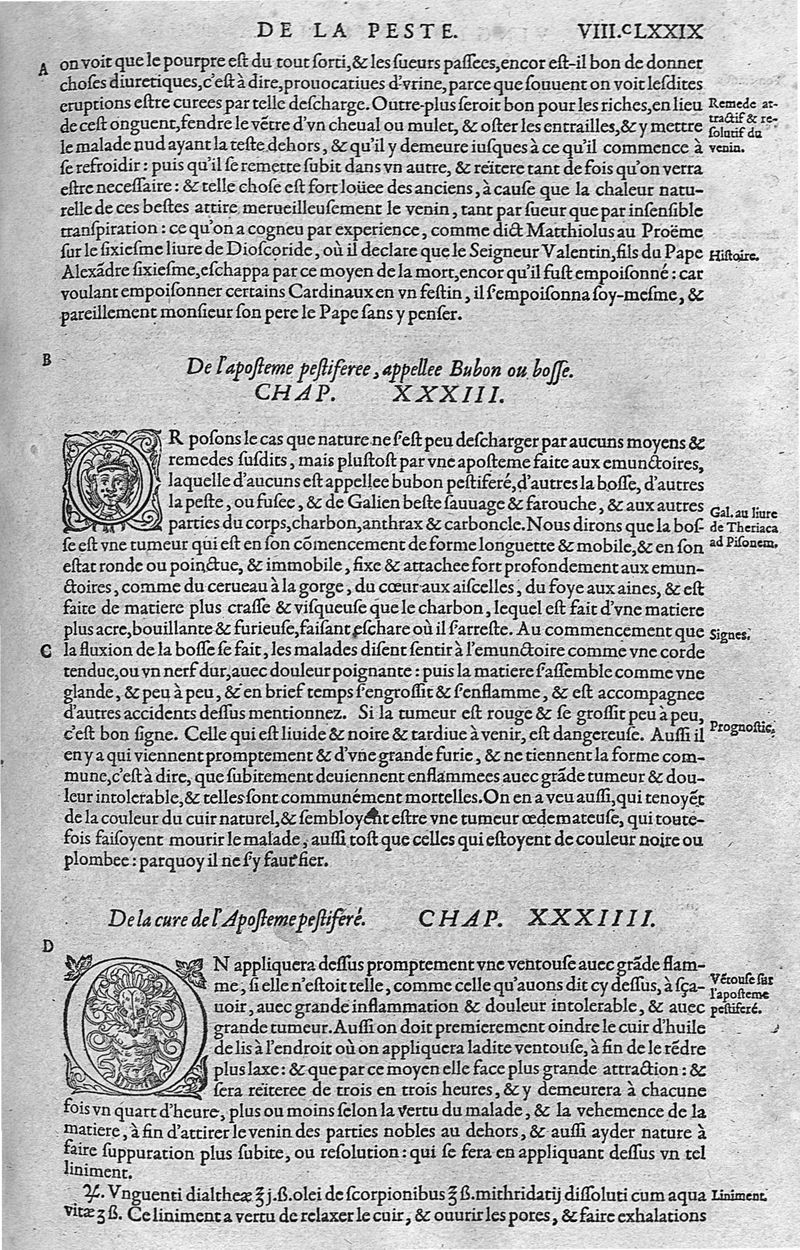 DE LA PESTE. VIII.ᶜLXXIX
A on voit que le pourpre eſt du tout ſorti,& les ſueurs paſſees,encor eſt-il bon de donner
choſes diuretiques,c'eſt à dire,prouocatiues d'vrine, parce que ſouuent on voit leſdites
eruptions eſtre curees par telle deſcharge. Outre-plus ſeroit bon pour les riches,en lieu
de ceſt onguent,fendre le vẽtre d'vn cheual ou mulet, & oſter les entrailles,& y mettre
le malade nud ayant la teſte dehors, & qu'il y demeure iuſques à ce qu'il commence à
ſe refroidir : puis qu'il ſe remette ſubit dans vn autre, & reïtere tant de fois qu'on verra
eſtre neceſſaire : & telle choſe eſt fort loüee des anciens, à cauſe que la chaleur natu-
relle de ces beſtes attire merueilleuſement le venin, tant par ſueur que par inſenſible
tranſpiration : ce qu'on a cogneu par experience, comme dict Matthiolus au Proëme
ſur le ſixieſme liure de Dioſcoride, où il declare que le Seigneur Valentin, fils du Pape
Alexãdre ſixieſme,eſchappa par ce moyen de la mort,encor qu'il fuſt empoiſonné : car
voulant empoiſonner certains Cardinaux en vn feſtin, il ſ'empoiſonna ſoy-meſme, &
pareillement monſieur ſon pere le Pape ſans y penſer.
Remede at-
tractif & re-
ſolutif du
venin.
Hiſtoire.
B
De l'apoſteme peſtiferee, appellee Bubon ou boſſe.
CHAP. XXXIII.
OR poſons le cas que nature ne ſ'eſt peu deſcharger par aucuns moyens &
remedes ſuſdits, mais pluſtoſt par vne apoſteme faite aux emunctoires,
laquelle d'aucuns eſt appellee bubon peſtiferé,d'autres la boſſe, d'autres
la peſte, ou fuſee, & de Galien beſte ſauuage & farouche, & aux autres
parties du corps,charbon,anthrax & carboncle.Nous dirons que la boſ-
ſe eſt vne tumeur qui eſt en ſon cõmencement de forme longuette & mobile,& en ſon
eſtat ronde ou poinctue, & immobile, fixe & attachee fort profondement aux emun-
ctoires, comme du cerueau à la gorge, du cœur aux aiſcelles, du foye aux aines, & eſt
faite de matiere plus craſſe & viſqueuſe que le charbon, lequel eſt fait d'vne matiere
plus acre,bouillante & furieuſe,faiſant eſchare où il ſ'arreſte. Au commencement que
C la fluxion de la boſſe ſe fait, les malades diſent ſentir à l'emunctoire comme vne corde
tendue,ou vn nerf dur,auec douleur poignante : puis la matiere ſ'aſſemble comme vne
glande, & peu à peu, & en brief temps ſ'engroſſit & ſ'enflamme, & eſt accompagnee
d'autres accidents deſſus mentionnez. Si la tumeur eſt rouge & ſe groſſit peu à peu,
c'eſt bon ſigne. Celle qui eſt liuide & noire & tardiue à venir, eſt dangereuſe. Auſſi il
en y a qui viennent promptement & d'vne grande furie, & ne tiennent la forme com-
mune,c'eſt à dire, que ſubitement deuiennent enflammees auec grãde tumeur & dou-
leur intolerable,& telles ſont communément mortelles.On en a veu auſſi,qui tenoyẽt
de la couleur du cuir naturel,& ſembloyent eſtre vne tumeur œdemateuſe, qui toute-
fois faiſoyent mourir le malade, auſſi toſt que celles qui eſtoyent de couleur noire ou
plombee : parquoy il ne ſ'y faut fier.
Gal. au liure
de Theriaca
ad Piſonem.
Signes.
Prognoſtic.
De la cure de l'Apoſteme peſtiferé. CHAP. XXXIIII.
D
ON appliquera deſſus promptement vne ventouſe auec grãde flam-
me, ſi elle n'eſtoit telle, comme celle qu'auons dit cy deſſus, à ſça-
uoir, auec grande inflammation & douleur intolerable, & auec
grande tumeur.Auſſi on doit premierement oindre le cuir d'huile
de lis à l'endroit où on appliquera ladite ventouſe, à fin de le rẽdre
plus laxe : & que par ce moyen elle face plus grande attraction : &
ſera reïteree de trois en trois heures, & y demeurera à chacune
fois vn quart d'heure, plus ou moins ſelon la vertu du malade, & la vehemence de la
matiere, à fin d'attirer le venin des parties nobles au dehors, & auſſi ayder nature à
faire ſuppuration plus ſubite, ou reſolution : qui ſe fera en appliquant deſſus vn tel
liniment.
℞. Vnguenti dialtheæ ℥j.ß.olei de ſcorpionibus ℥ß.mithridatij diſſoluti cum aqua
vitæ ʒß. Ce liniment a vertu de relaxer le cuir, & ouurir les pores, & faire exhalations
Vẽtouſe ſur
l'apoſteme
peſtiferé.
Liniment.